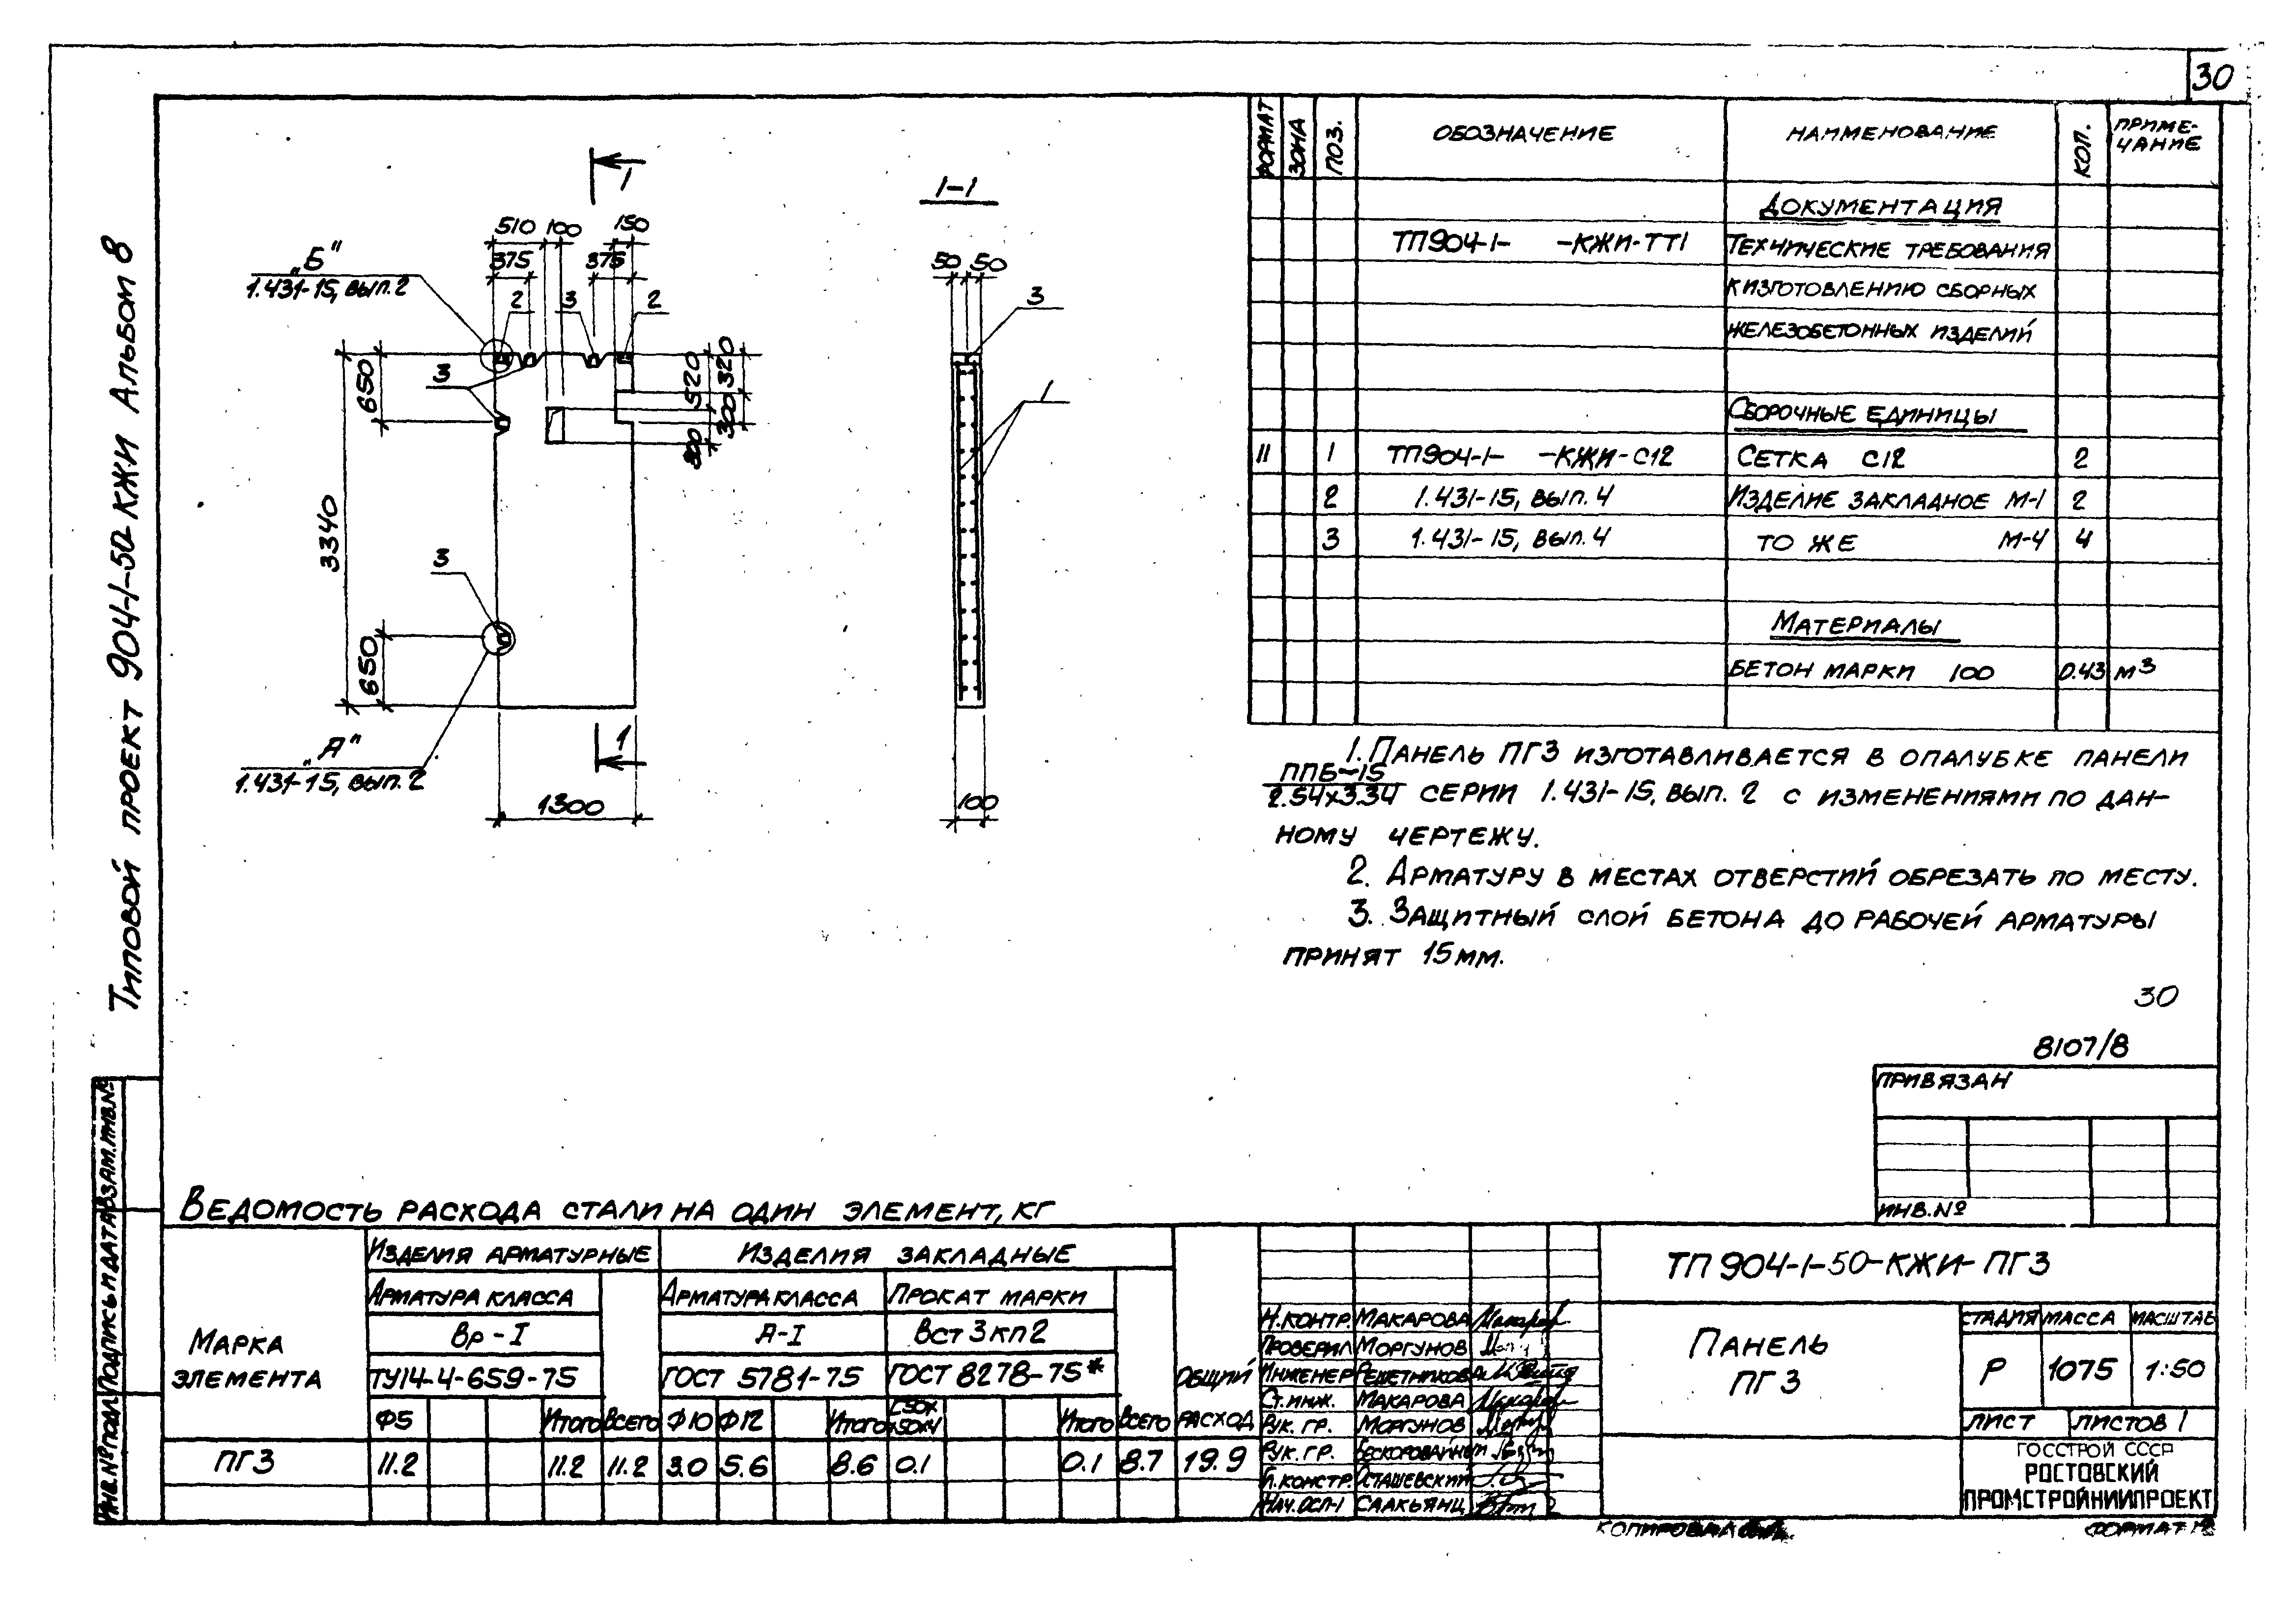 30
Типовой проект 904-1-50-КЖИ Альбом 8
1
1-1
510 100 150
375 375
„Б"
1.431-15, вып. 2
2 3 2
3
650
3340
3
650
520
320
300
300
„А"
1.431-15, вып. 2
1
1300
50 50
3
1
100
ФОРМАТ ЗОНА ПОЗ. ОБОЗНАЧЕНИЕ НАИМЕНОВАНИЕ КОЛ. ПРИМЕ-
ЧАНИЕ
ДОКУМЕНТАЦИЯ
ТП904-1- -КЖИ-ТТ1 ТЕХНИЧЕСКИЕ ТРЕБОВАНИЯ
К ИЗГОТОВЛЕНИЮ СБОРНЫХ
ЖЕЛЕЗОБЕТОННЫХ ИЗДЕЛИЙ
СБОРОЧНЫЕ ЕДИНИЦЫ
11 1 ТП904-1- -КЖИ-С12 СЕТКА С12 2
2 1.431-15, ВЫП. 4 ИЗДЕЛИЕ ЗАКЛАДНОЕ М-1 2
3 1.431-15, ВЫП. 4 ТО ЖЕ М-4 4
МАТЕРИАЛЫ
БЕТОН МАРКИ 100 0.43 м³
1. ПАНЕЛЬ ПГ3 ИЗГОТАВЛИВАЕТСЯ В ОПАЛУБКЕ ПАНЕЛИ
ППБ-15
2.54х3.34 СЕРИИ 1.431-15, ВЫП. 2 С ИЗМЕНЕНИЯМИ ПО ДАН-
НОМУ ЧЕРТЕЖУ.
2. АРМАТУРУ В МЕСТАХ ОТВЕРСТИЙ ОБРЕЗАТЬ ПО МЕСТУ.
3. ЗАЩИТНЫЙ СЛОЙ БЕТОНА ДО РАБОЧЕЙ АРМАТУРЫ
ПРИНЯТ 15 мм.
30
8107/8
ПРИВЯЗАН
ИНВ. №
ВЗАМ. ИНВ. №
ПОДПИСЬ И ДАТА
ИНВ. № ПОДЛ.
ВЕДОМОСТЬ РАСХОДА СТАЛИ НА ОДИН ЭЛЕМЕНТ, КГ
МАРКА
ЭЛЕМЕНТА
ИЗДЕЛИЯ АРМАТУРНЫЕ ИЗДЕЛИЯ ЗАКЛАДНЫЕ
АРМАТУРА КЛАССА АРМАТУРА КЛАССА ПРОКАТ МАРКИ
Вр-I А-I Вст3кп2
ТУ14-4-659-75 ГОСТ 5781-75 ГОСТ 8278-75*
ОБЩИЙ
РАСХОД
Ф5 Итого Всего Ф10 Ф12 Итого Итого Всего
ПГ3 11.2 11.2 11.2 3.0 5.6 8.6 0.1 0.1 8.7 19.9
Н. КОНТР. МАКАРОВА
ПРОВЕРИЛ МОРГУНОВ
ИНЖЕНЕР РЕШЕТНИКОВА
СТ. ИНЖ. МАКАРОВА
РУК. ГР. МОРГУНОВ
РУК. ГР. БЕСКОРОВАЙНЫЙ
ГЛ. КОНСТР. ОСТАШЕВСКИЙ
НАЧ. ОСП-1 СААКЬЯНЦ
ТП 904-1-50-КЖИ-ПГ3
ПАНЕЛЬ
ПГ3
СТАДИЯ МАССА МАСШТАБ
Р 1075 1:50
ЛИСТ ЛИСТОВ 1
ГОССТРОЙ СССР
РОСТОВСКИЙ
ПРОМСТРОЙНИИПРОЕКТ
КОПИРОВАЛ
ФОРМАТ